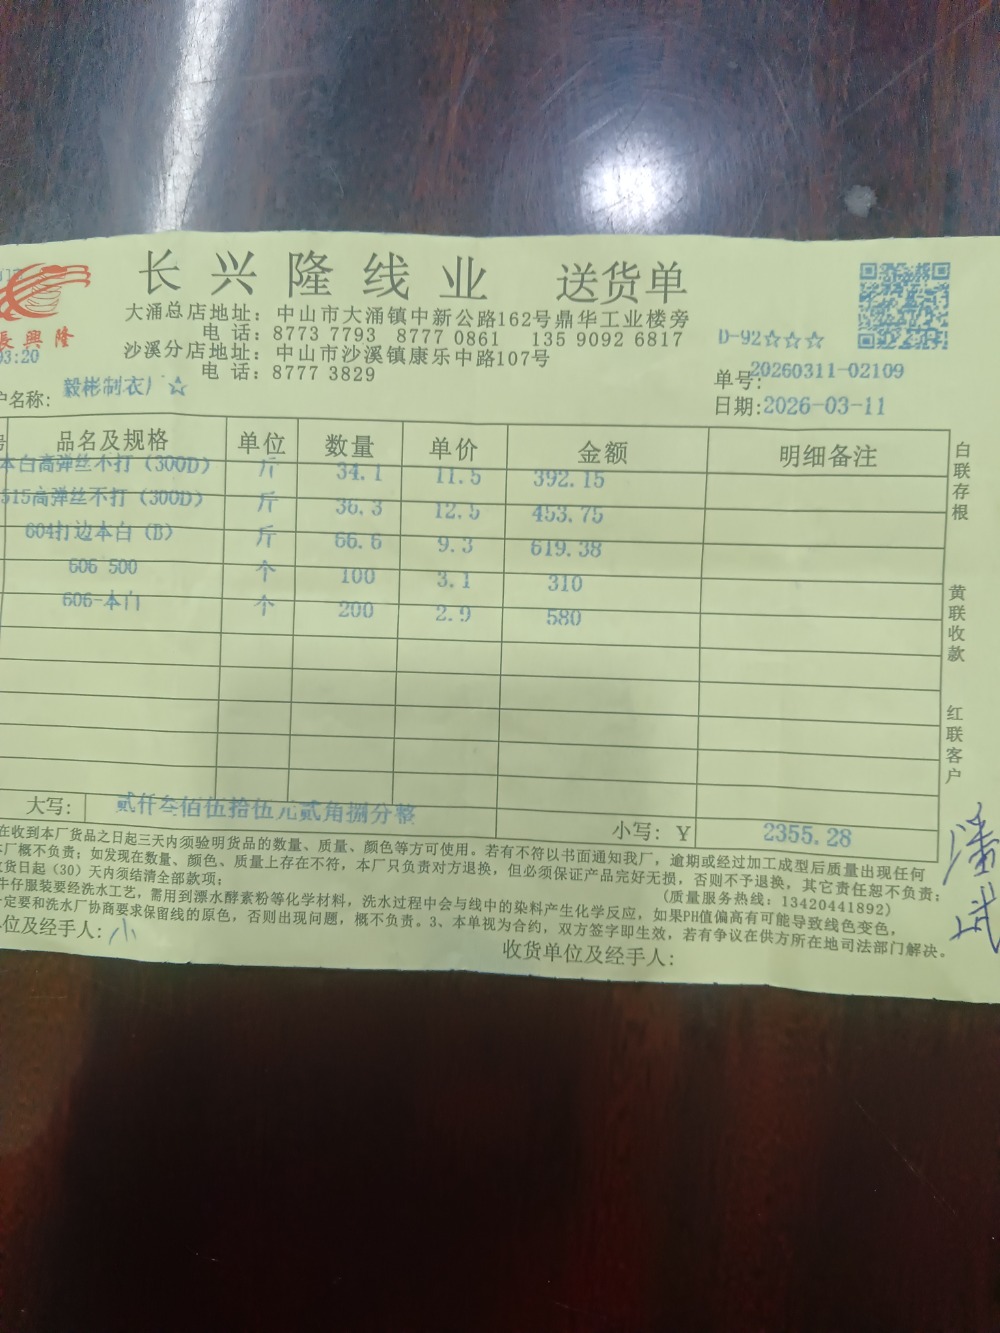 长兴隆线业 送货单
長興隆
大涌总店地址：中山市大涌镇中新公路162号鼎华工业楼旁
电 话：8773 7793 8777 0861 135 9092 6817
沙溪分店地址：中山市沙溪镇康乐中路107号
电 话：8777 3829
D-92☆☆☆
03:20
户名称：毅彬制衣厂☆
单号：20260311-02109
日期：2026-03-11
号 品名及规格 单位 数量 单价 金额 明细备注
本白高弹丝不打（300D） 斤 34.1 11.5 392.15
515高弹丝不打（300D） 斤 36.3 12.5 453.75
604打边本白（B） 斤 66.6 9.3 619.38
606 500 个 100 3.1 310
606-本白 个 200 2.9 580
大写： 贰仟叁佰伍拾伍元贰角捌分整
小写：Y 2355.28
白联存根
黄联收款
红联客户
在收到本厂货品之日起三天内须验明货品的数量、质量、颜色等方可使用。若有不符以书面通知我厂，逾期或经过加工成型后质量出现任何
本厂概不负责；如发现在数量、颜色、质量上存在不符，本厂只负责对方退换，但必须保证产品完好无损，否则不予退换，其它责任恕不负责；
收货日起（30）天内须结清全部款项；
(质量服务热线：13420441892)
牛仔服装要经洗水工艺，需用到漂水酵素粉等化学材料，洗水过程中会与线中的染料产生化学反应，如果PH值偏高有可能导致线色变色，
一定要和洗水厂协商要求保留线的原色，否则出现问题，概不负责。3、本单视为合约，双方签字即生效，若有争议在供方所在地司法部门解决。
单位及经手人：小
收货单位及经手人：
潘斌